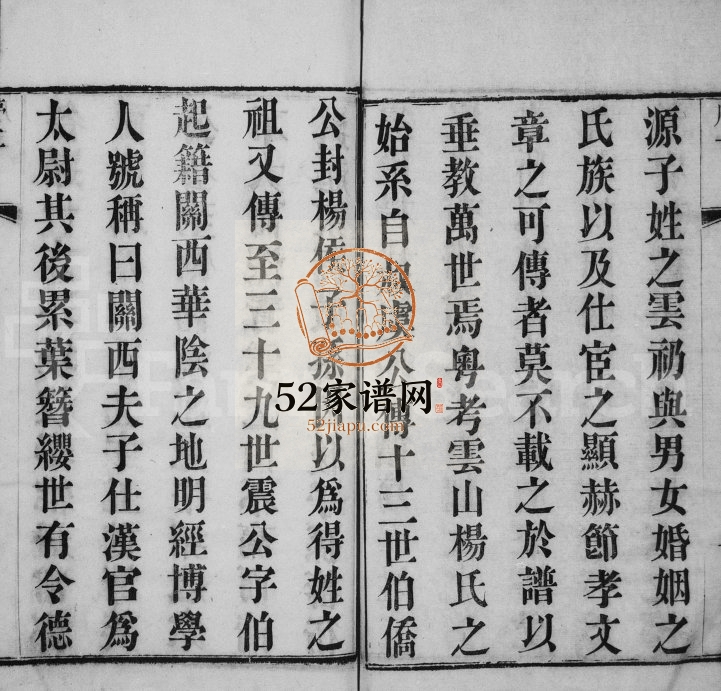 源子姓之雲礽與男女婚姻之
氏族以及仕宦之顯赫節孝文
章之可傳者莫不載之於譜以
垂教萬世焉粵考雲山楊氏之
始系自虞公傳十三世伯僑
公封楊侯子孫以為得姓之
祖又傳至三十九世震公字伯
起籍關西華陰之地明經博學
人號稱曰關西夫子仕漢官為
太尉其後累葉簪纓世有令德
52家谱网
52jiapu.com